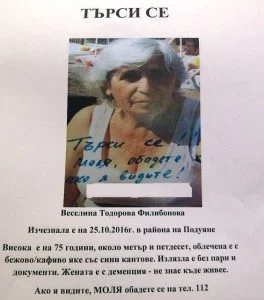 ТЪРСИ СЕ
Търси се!!
Моля, обадете
ако я видите!
Веселина Тодорова Филибонова
Изчезнала е на 25.10.2016г. в района на Подуяне
Висока с на 75 години, около метър и петдесет, облечена е с
бежово/кафяво яке със сини кантове. Излязла е без пари и
документи. Жената е с деменция - не знае къде живее.
Ако я видите, МОЛЯ обадете се на тел. 112